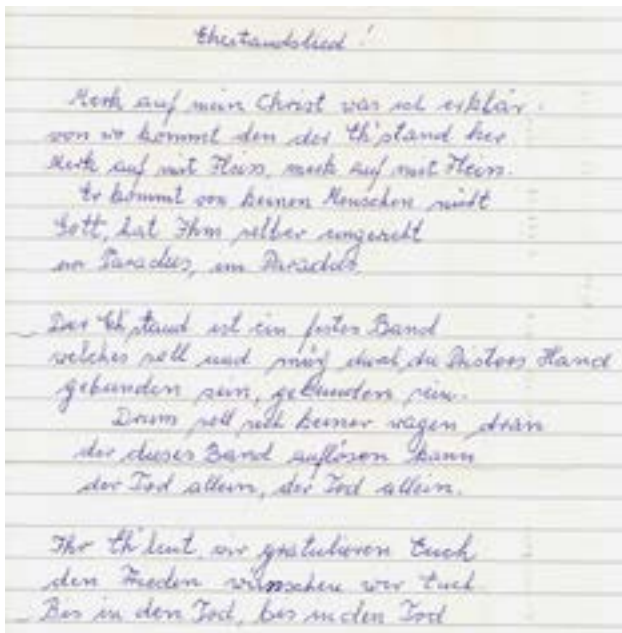 Ehestandslied!
Merk auf mein Christ was ich erklär.
von wo kommt den der Eh'stand her
Merk auf mit Fleiss, merk auf mit Fleiss.
Er kommt von keinen Menschen nicht
Gott, hat Ihm selber eingericht
im Paradies, im Paradies.
Der Eh'stand ist ein festes Band
welches soll und muss durch die Pristers Hand
gebunden sein, gebunden sein.
Drum soll sich keiner wagen dran
der dieses Band auflösen kann
der Tod allein, der Tod allein.
Ihr Eh'leut, wir gratulieren Euch
den Frieden wünschen wir Euch
Bis in den Tod, bis in den Tod